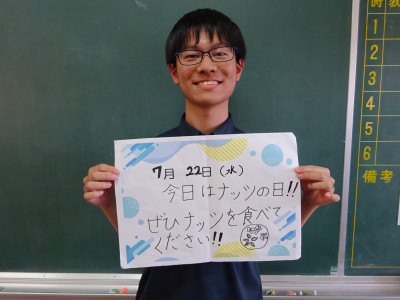 7月 22日(水)
今日はナッツの日!!
ぜひナッツを食べて
ください!!
時 教
1
2
3
4
5
6
備考